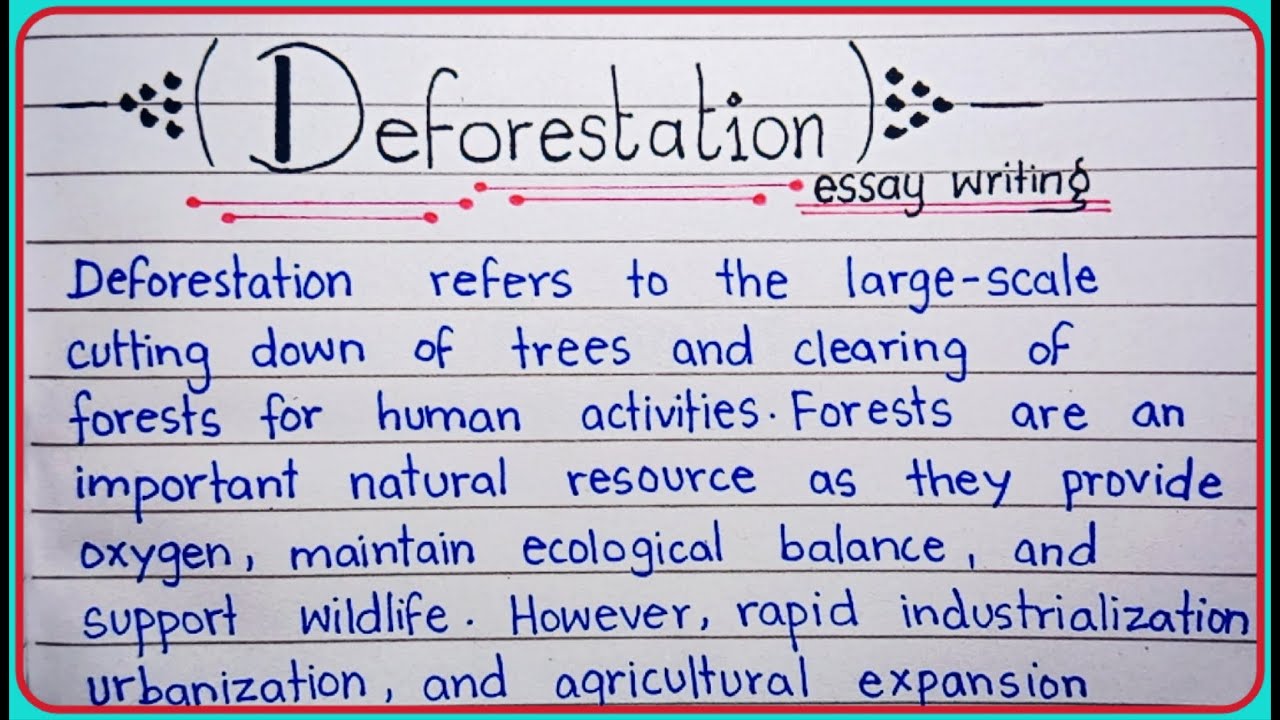 (Deforestation)
essay writing
Deforestation refers to the large-scale
cutting down of trees and clearing of
forests for human activities. Forests are an
important natural resource as they provide
oxygen, maintain ecological balance, and
support wildlife. However, rapid industrialization
urbanization, and agricultural expansion